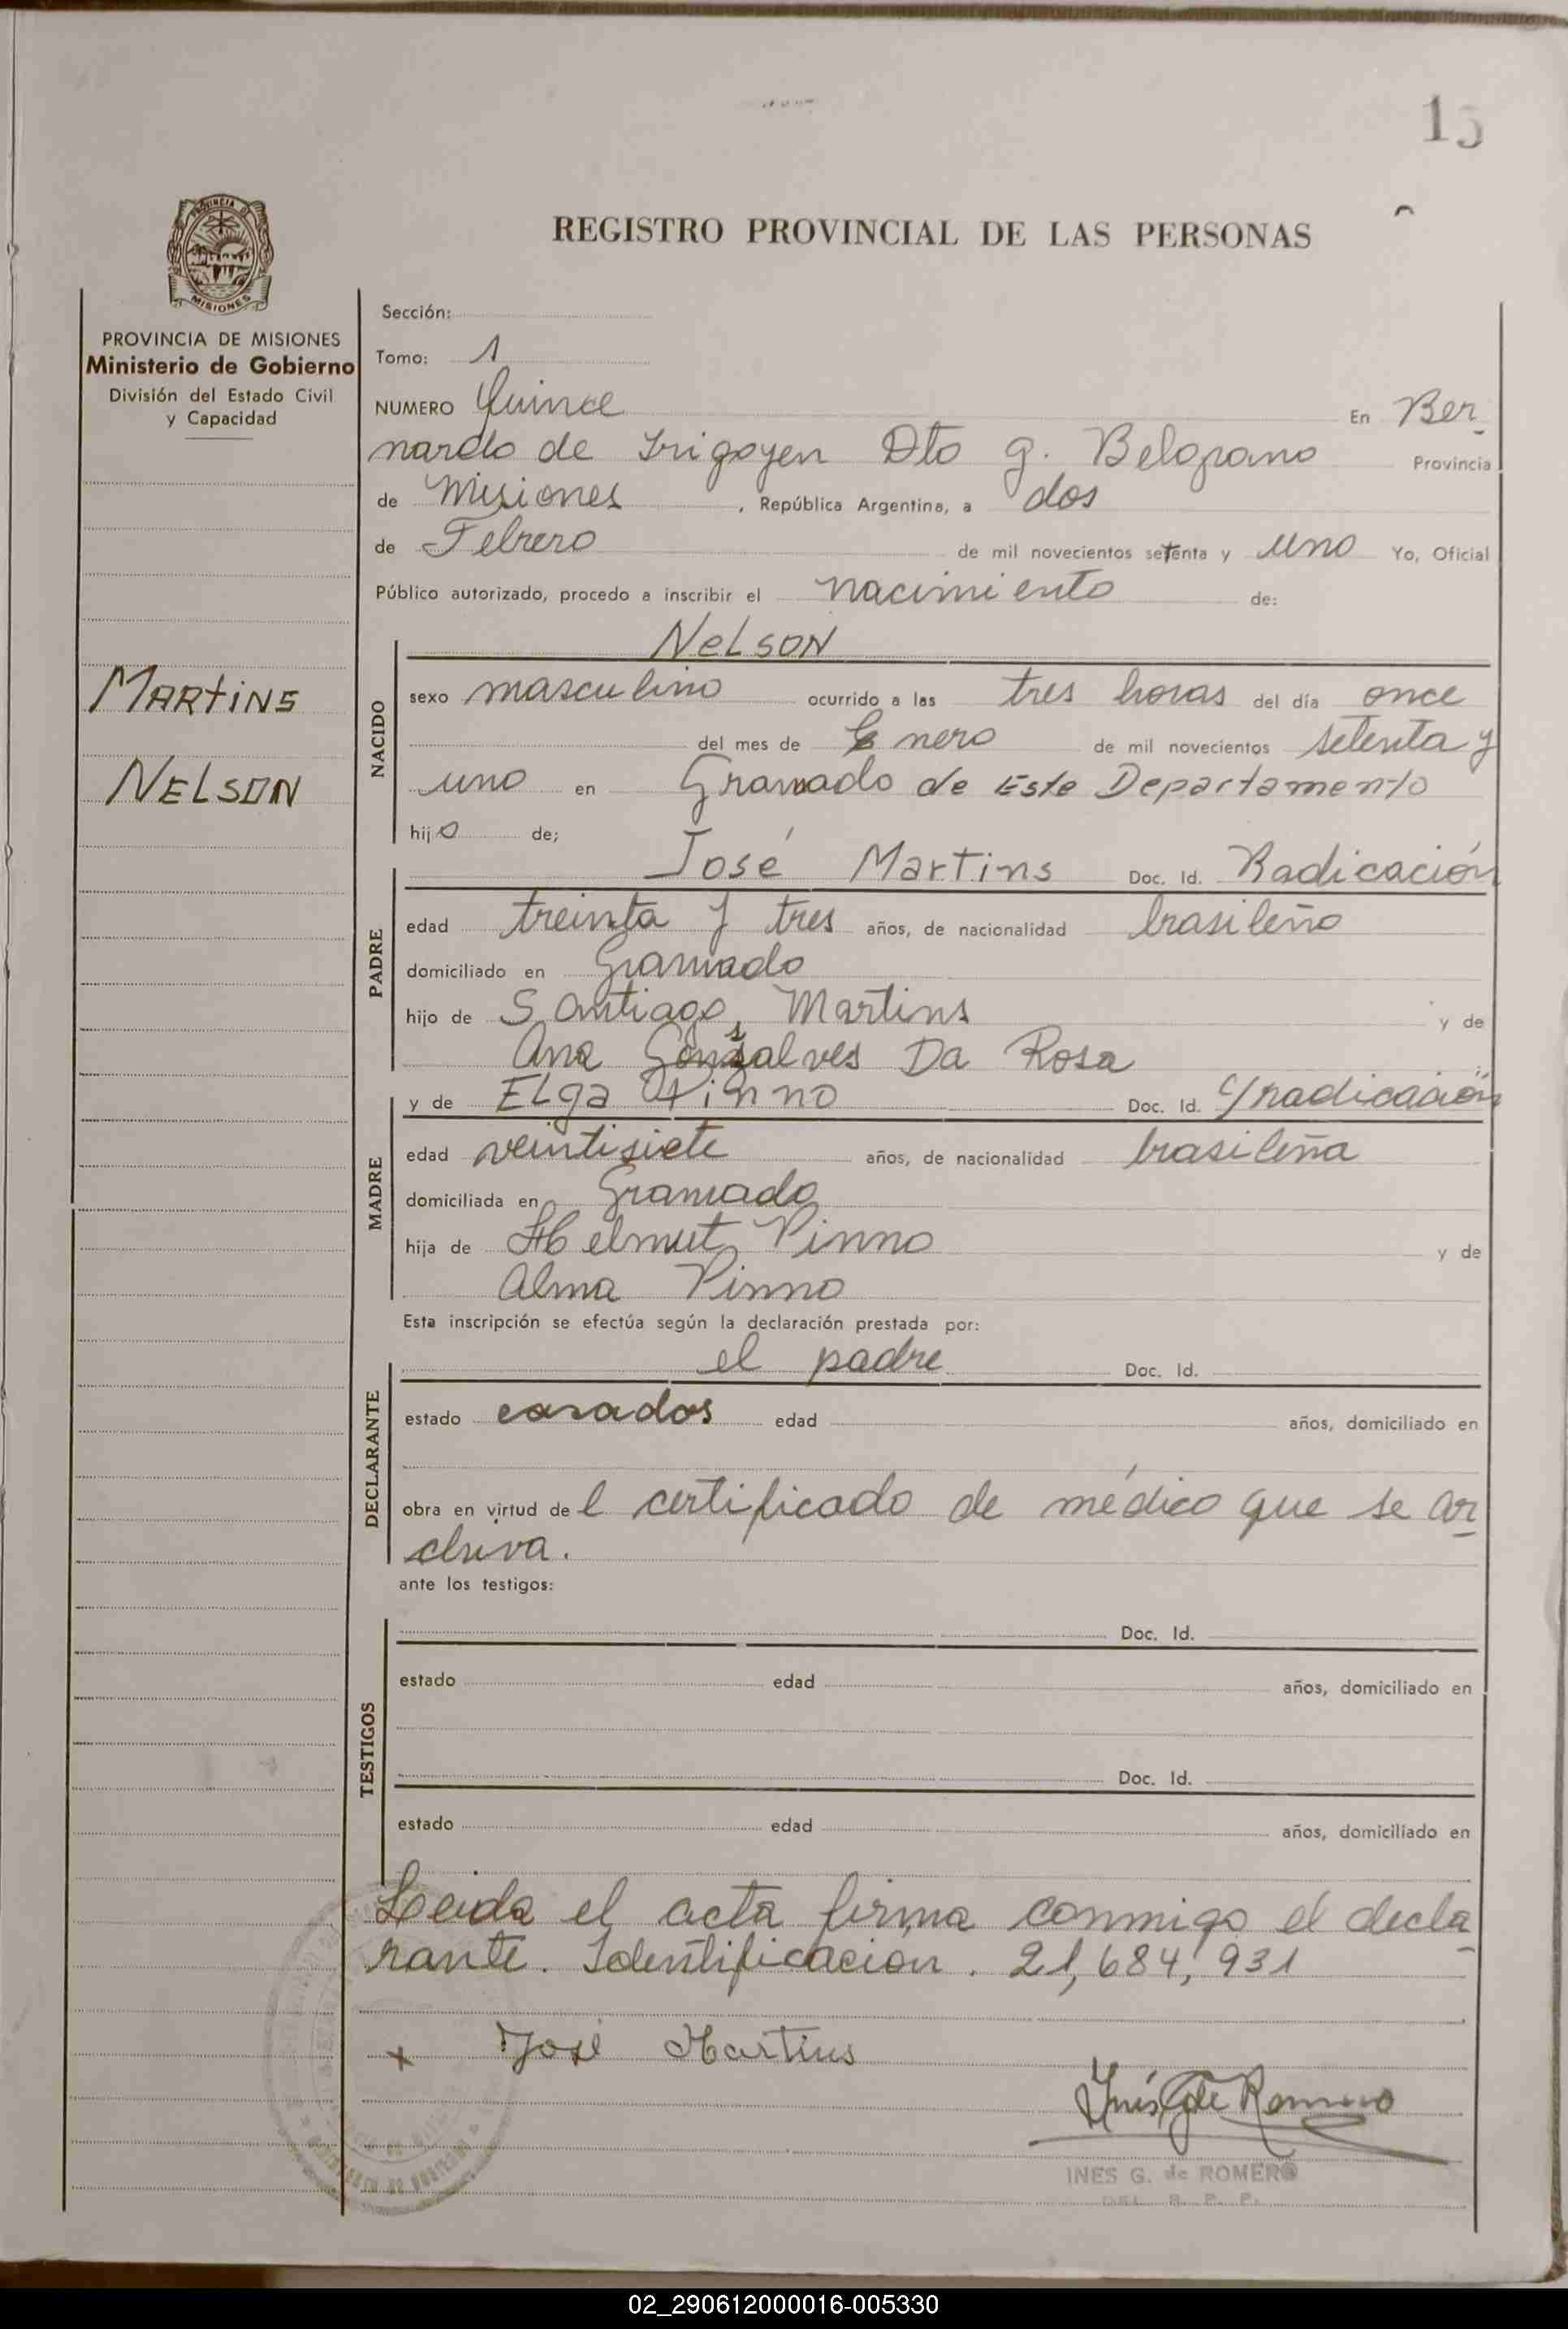 15
PROVINCIA DE
MISIONES
REGISTRO PROVINCIAL DE LAS PERSONAS
PROVINCIA DE MISIONES
Ministerio de Gobierno
División del Estado Civil
y Capacidad
MARTINS
NELSON
Sección:
Tomo: 1
NUMERO Quince En Ber
nardo de Irigoyen Dto g. Belgrano Provincia
de Misiones, República Argentina, a dos
de Febrero de mil novecientos setenta y uno Yo, Oficial
Público autorizado, procedo a inscribir el nacimiento de:
NELSON
NACIDO
sexo masculino ocurrido a las tres horas del día once
del mes de Enero de mil novecientos setenta y
uno en Gramado de Este Departamento
hijo de;
José Martins Doc. Id. Radicación
PADRE
edad treinta y tres años, de nacionalidad brasileño
domiciliado en Gramado
hijo de Santiago Martins y de
Ana Gonsalves Da Rosa
y de Elga Pinno Doc. Id. Yradicación
MADRE
edad veintisiete años, de nacionalidad brasileña
domiciliada en Gramado
hija de Helmut Pinno y de
Alma Pinno
Esta inscripción se efectúa según la declaración prestada por:
el padre Doc. Id.
DECLARANTE
estado casados edad años, domiciliado en
obra en virtud de l certificado de médico que se ar
chiva.
ante los testigos:
TESTIGOS
Doc. Id.
estado edad años, domiciliado en
Doc. Id.
estado edad años, domiciliado en
Leida el acta firma conmigo el decla
rante. Identificación. 21,684,931
x José Martins
Inés G de Romero
INES G. de ROMERO
DEL. R. P. P.
02_290612000016-005330